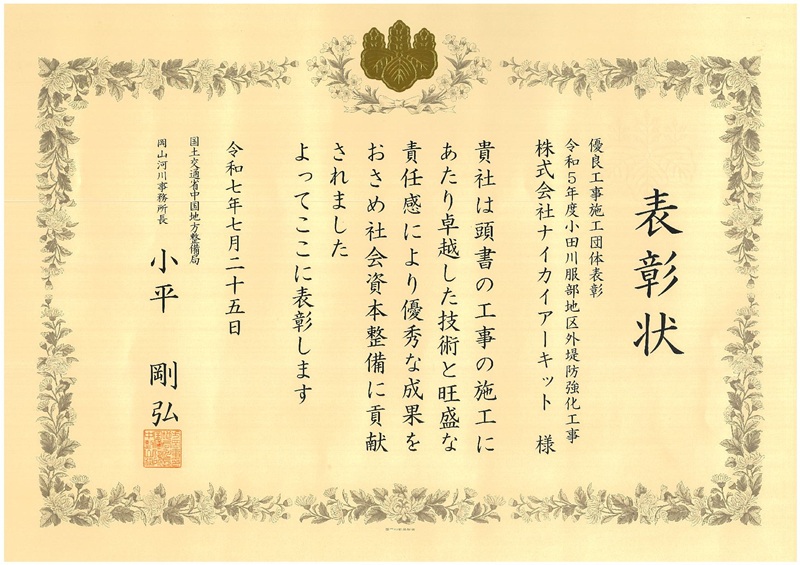 表彰状
優良工事施工団体表彰
令和5年度小田川服部地区外堤防強化工事
株式会社ナイカイアーキット 様
貴社は頭書の工事の施工に
あたり卓越した技術と旺盛な
責任感により優秀な成果を
おさめ社会資本整備に貢献
されました
よってここに表彰します
令和七年七月二十五日
国土交通省中国地方整備局
岡山河川事務所長
小平 剛弘